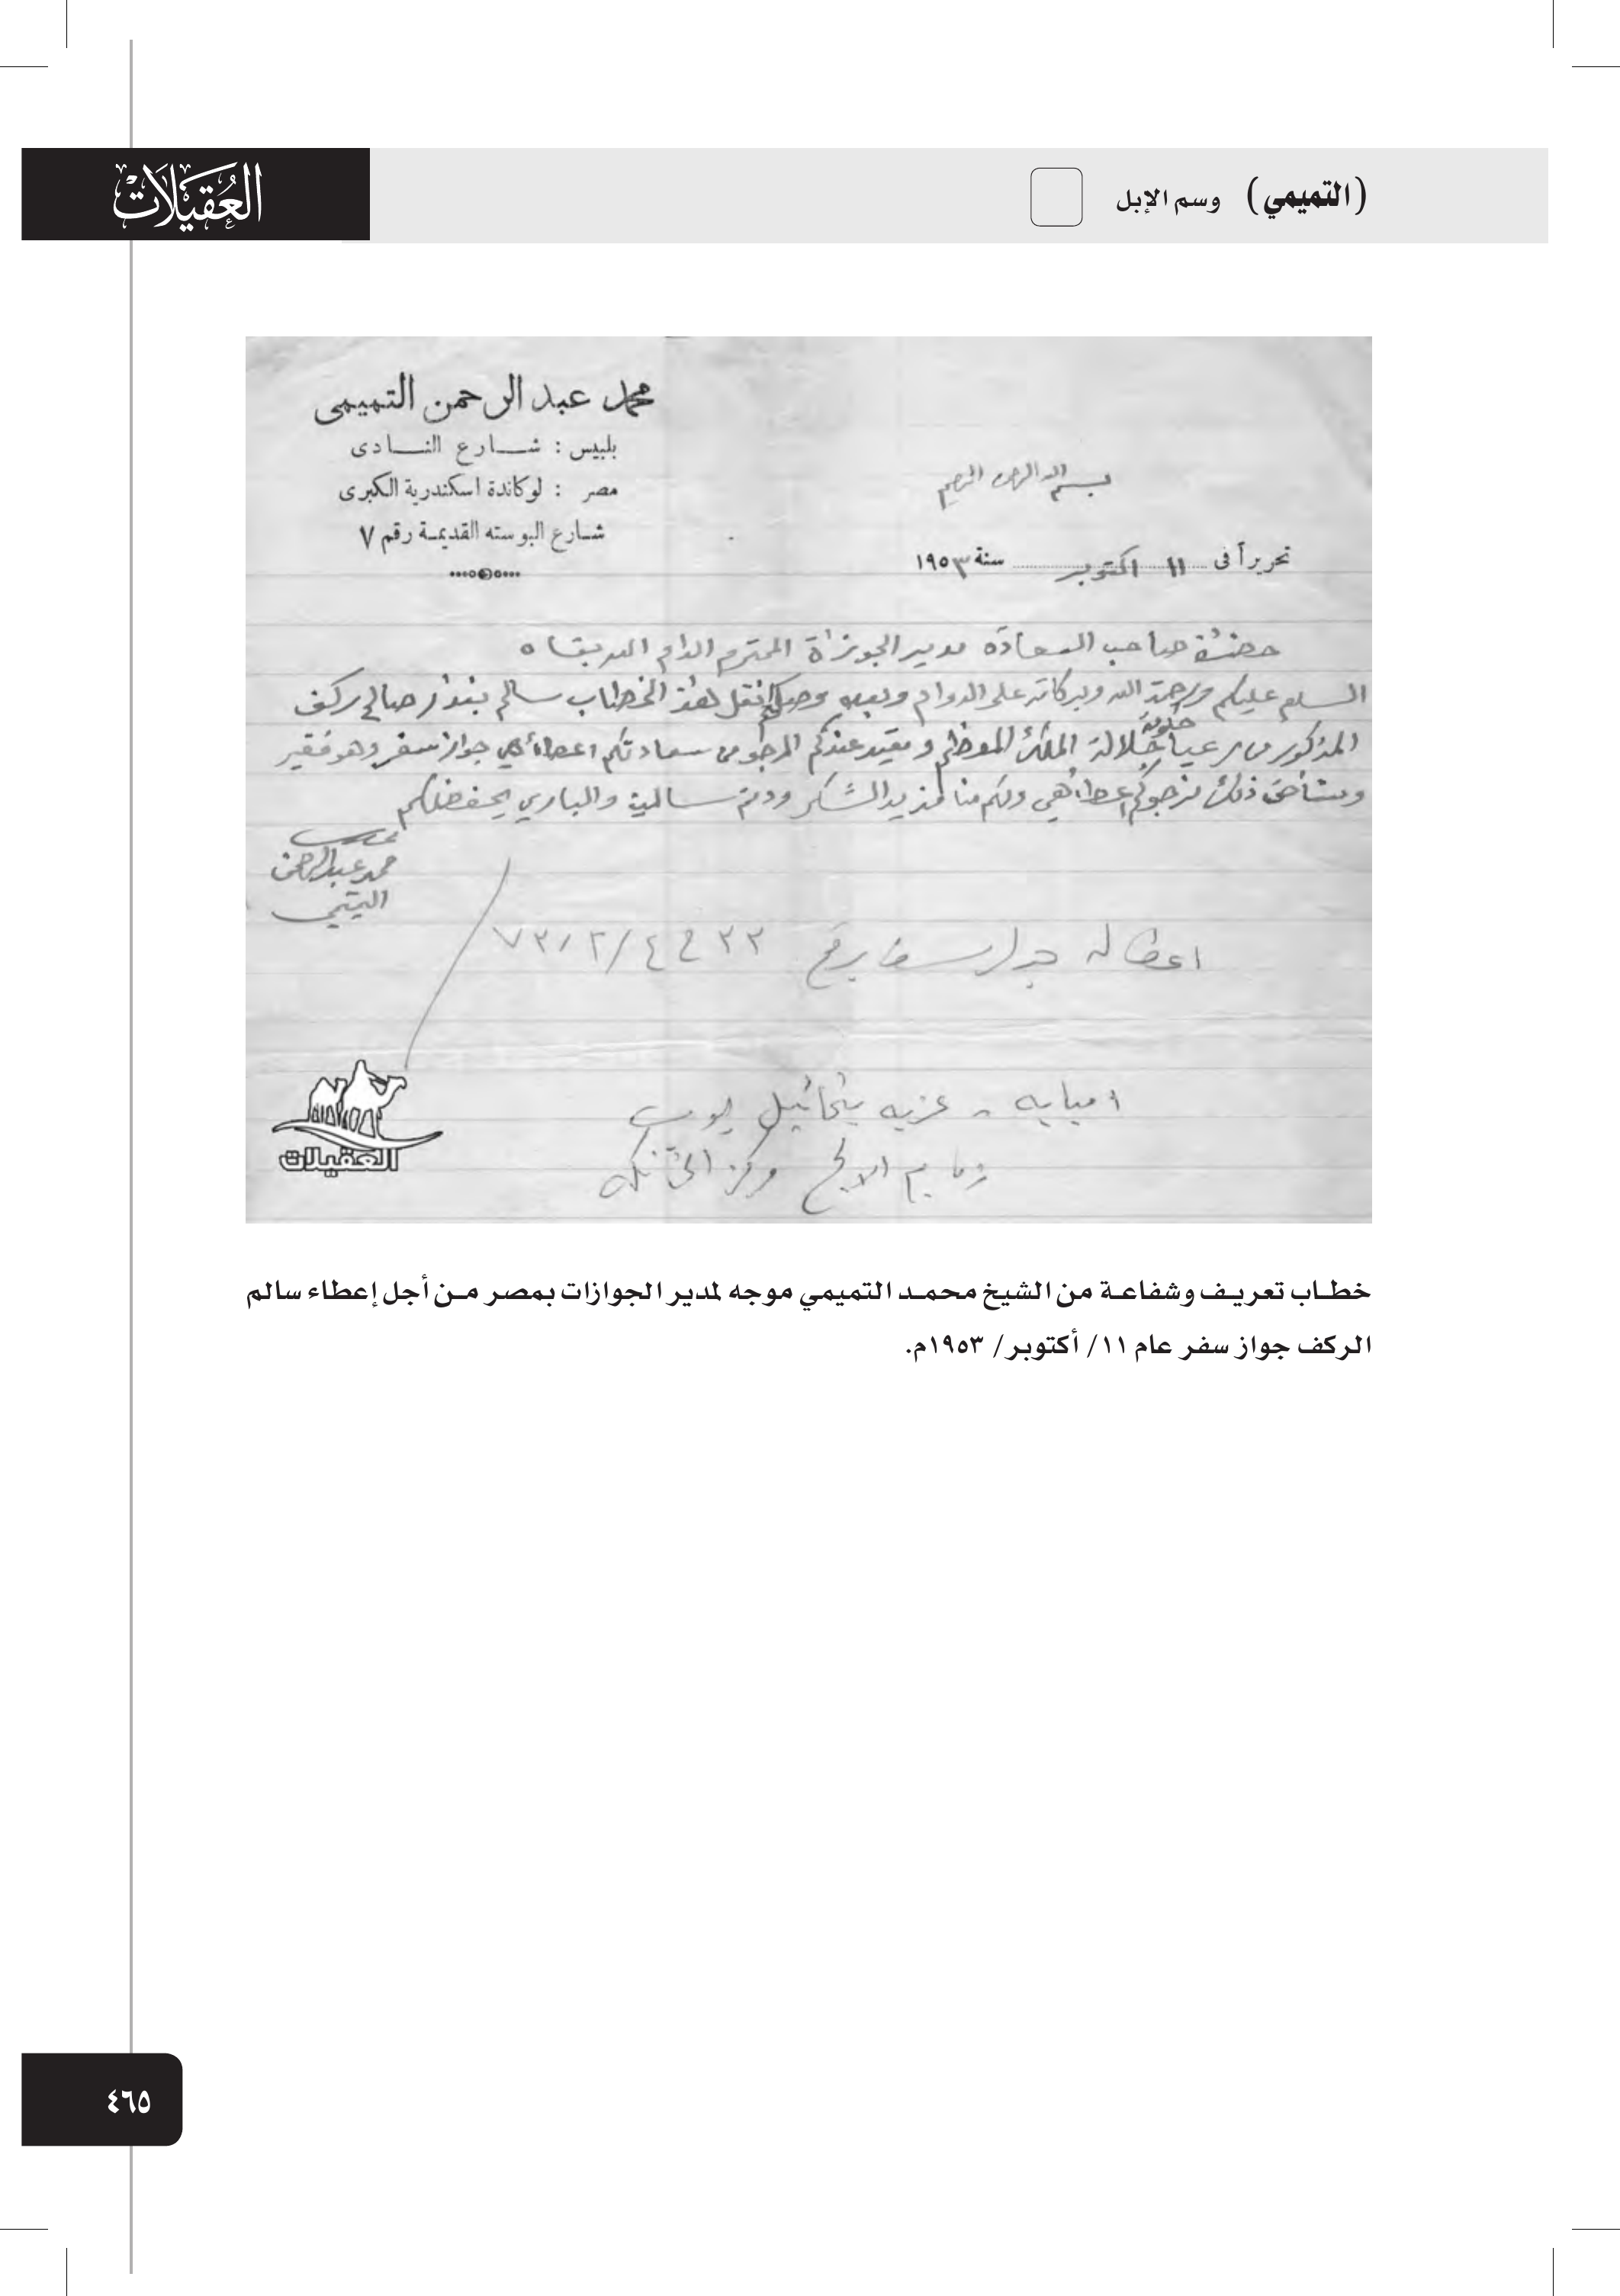 العُقَيْلَات
(التميمي) وسم الإبل
محمد عبد الرحمن التميمى
بلبيس : شارع النادى
مصر : لوكاندة اسكندرية الكبرى
شارع البوسته القديمة رقم ٧
بسم الله الرحمن الرحيم
تحريراً فى ١١ اكتوبر سنة ١٩٥٣
حضرة صاحب السعادة مدير الجوزاة المحترم الدام
السلام عليكم ورحمة الله وبركاته على الدوام وبعده نقل هذ الخطاب سالم صالح ركف
المذكور من رعيا جلالة الملك المعظم ومقيد عندكم المرجو من سعادتكم جواز سفر وهو فقير
ذلك نرجوكم ولكم منا مزيد الشكر ودمتم سالمين والباري يحفضكم
محمد عبدالرحمن
التميمي
رقم
امبابه - عزبه ميخائيل
مركز الخانكه
العقيلات
خطاب تعريف وشفاعة من الشيخ محمد التميمي موجه لمدير الجوازات بمصر من أجل إعطاء سالم
الركف جواز سفر عام ١١/ أكتوبر/ ١٩٥٣م.
٤٦٥